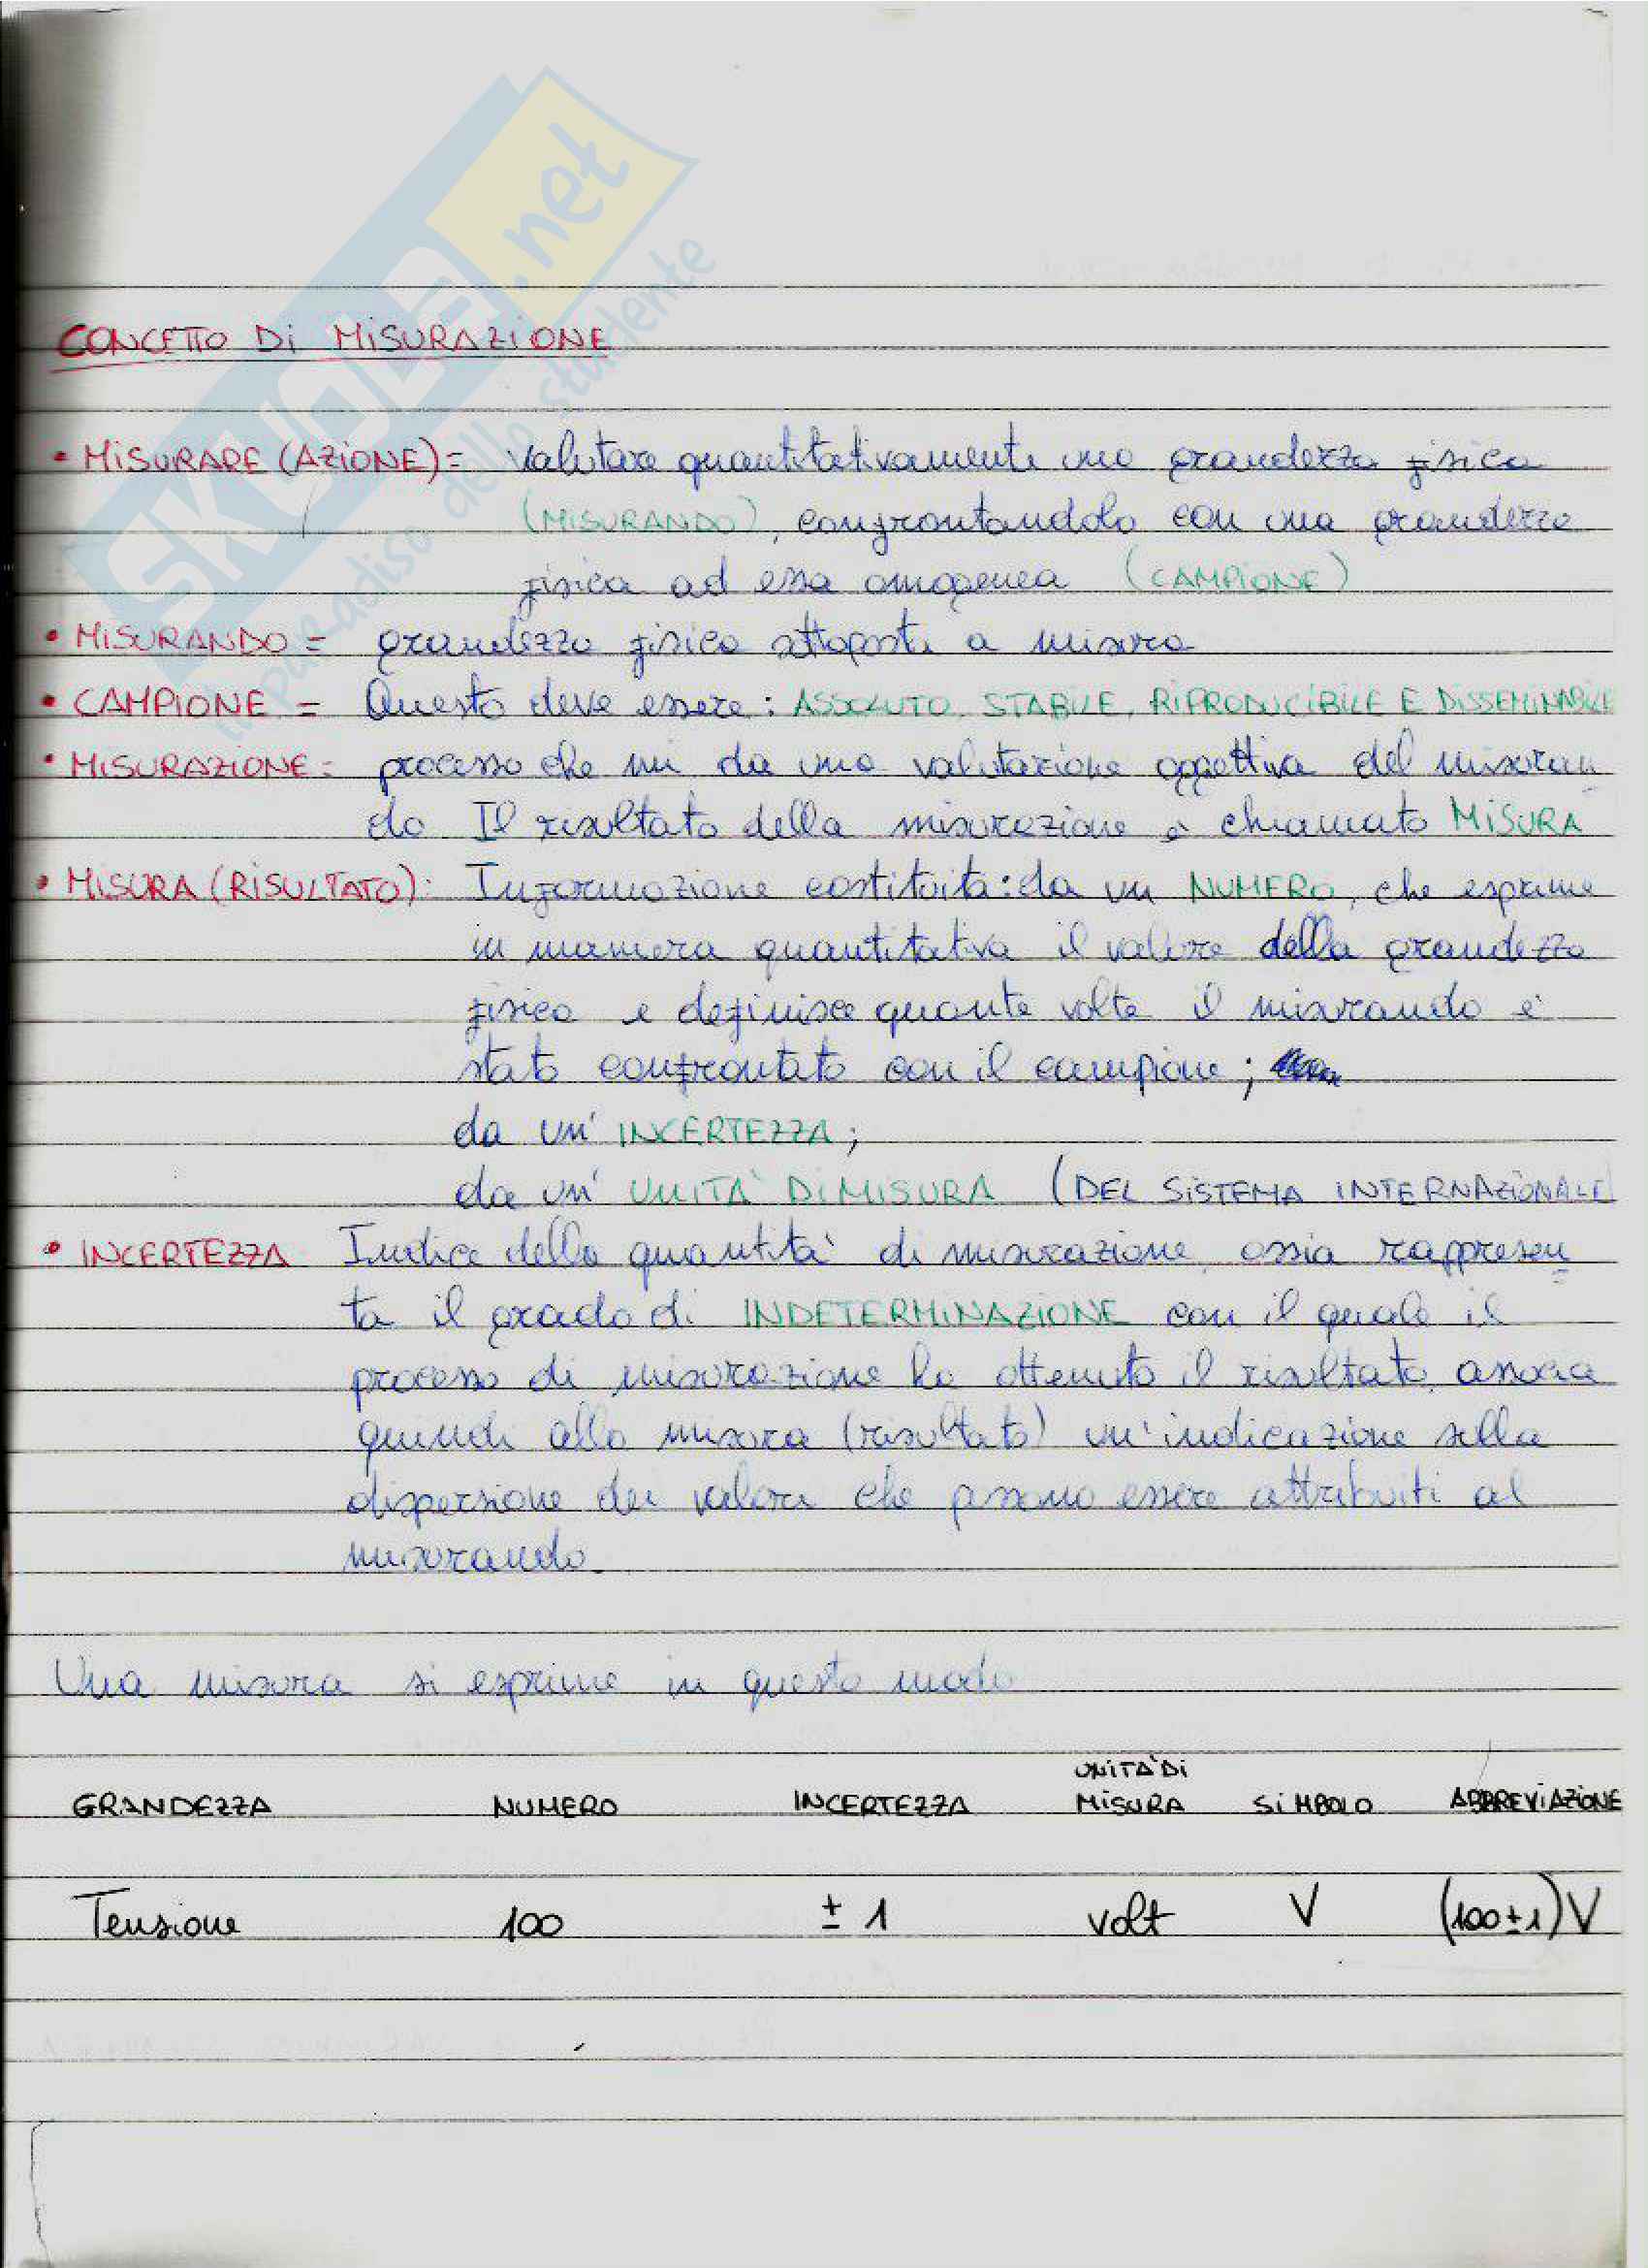 SKUOLA.net
il paradiso dello studente
CONCETTO Di MiSURAZiONE
• MiSURARE (AZiONE) = Valutare quantitativamente una grandezza fisica
(MiSURANDO), confrontandola con una grandezza
fisica ad essa omogenea (CAMPiONE)
• MiSURANDO = grandezza fisica sottoposta a misura
• CAMPiONE = Questo deve essere: ASSOLUTO, STABiLE, RiPRODUCiBiLE E DiSSEMiNABiLE
• MiSURAZiONE = processo che mi da una valutazione oggettiva del misuran
do Il risultato della misurazione è chiamato MiSURA
• MiSURA (RiSULTATO): Informazione costituita: da un NUMERO, che esprime
in maniera quantitativa il valore della grandezza
fisica e definisce quante volte il misurando è
stato confrontato con il campione;
da un' INCERTEZZA;
da un' UNITA' Di MiSURA (DEL SiSTEMA INTERNAZiONALE
• INCERTEZZA Indice della quantita' di misurazione, ossia rappresen
ta il grado di INDETERMiNAZiONE con il quale il
processo di misurazione ha ottenuto il risultato, associa
quindi alla misura (risultato) un'indicazione sulla
dispersione dei valori che possono essere attribuiti al
misurando.
Una misura si esprime in questo modo
GRANDEZZA NUMERO INCERTEZZA UNiTA' Di MiSURA SiMBOLO ABBREViAZiONE
Tensione 100 ± 1 volt V (100±1)V